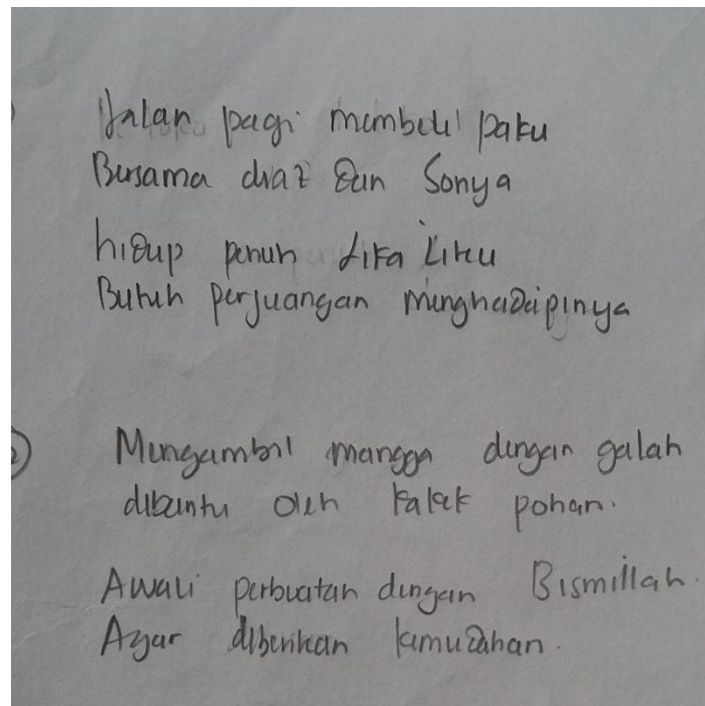 Jalan pagi membeli paku
Bersama diaz dan Sonya
hidup penuh Lika Liku
Butuh perjuangan menghadapinya
2
Mengambil mangga dengan galah
dibantu oleh kakek pohan.
Awali perbuatan dengan Bismillah.
Agar diberikan kemudahan.